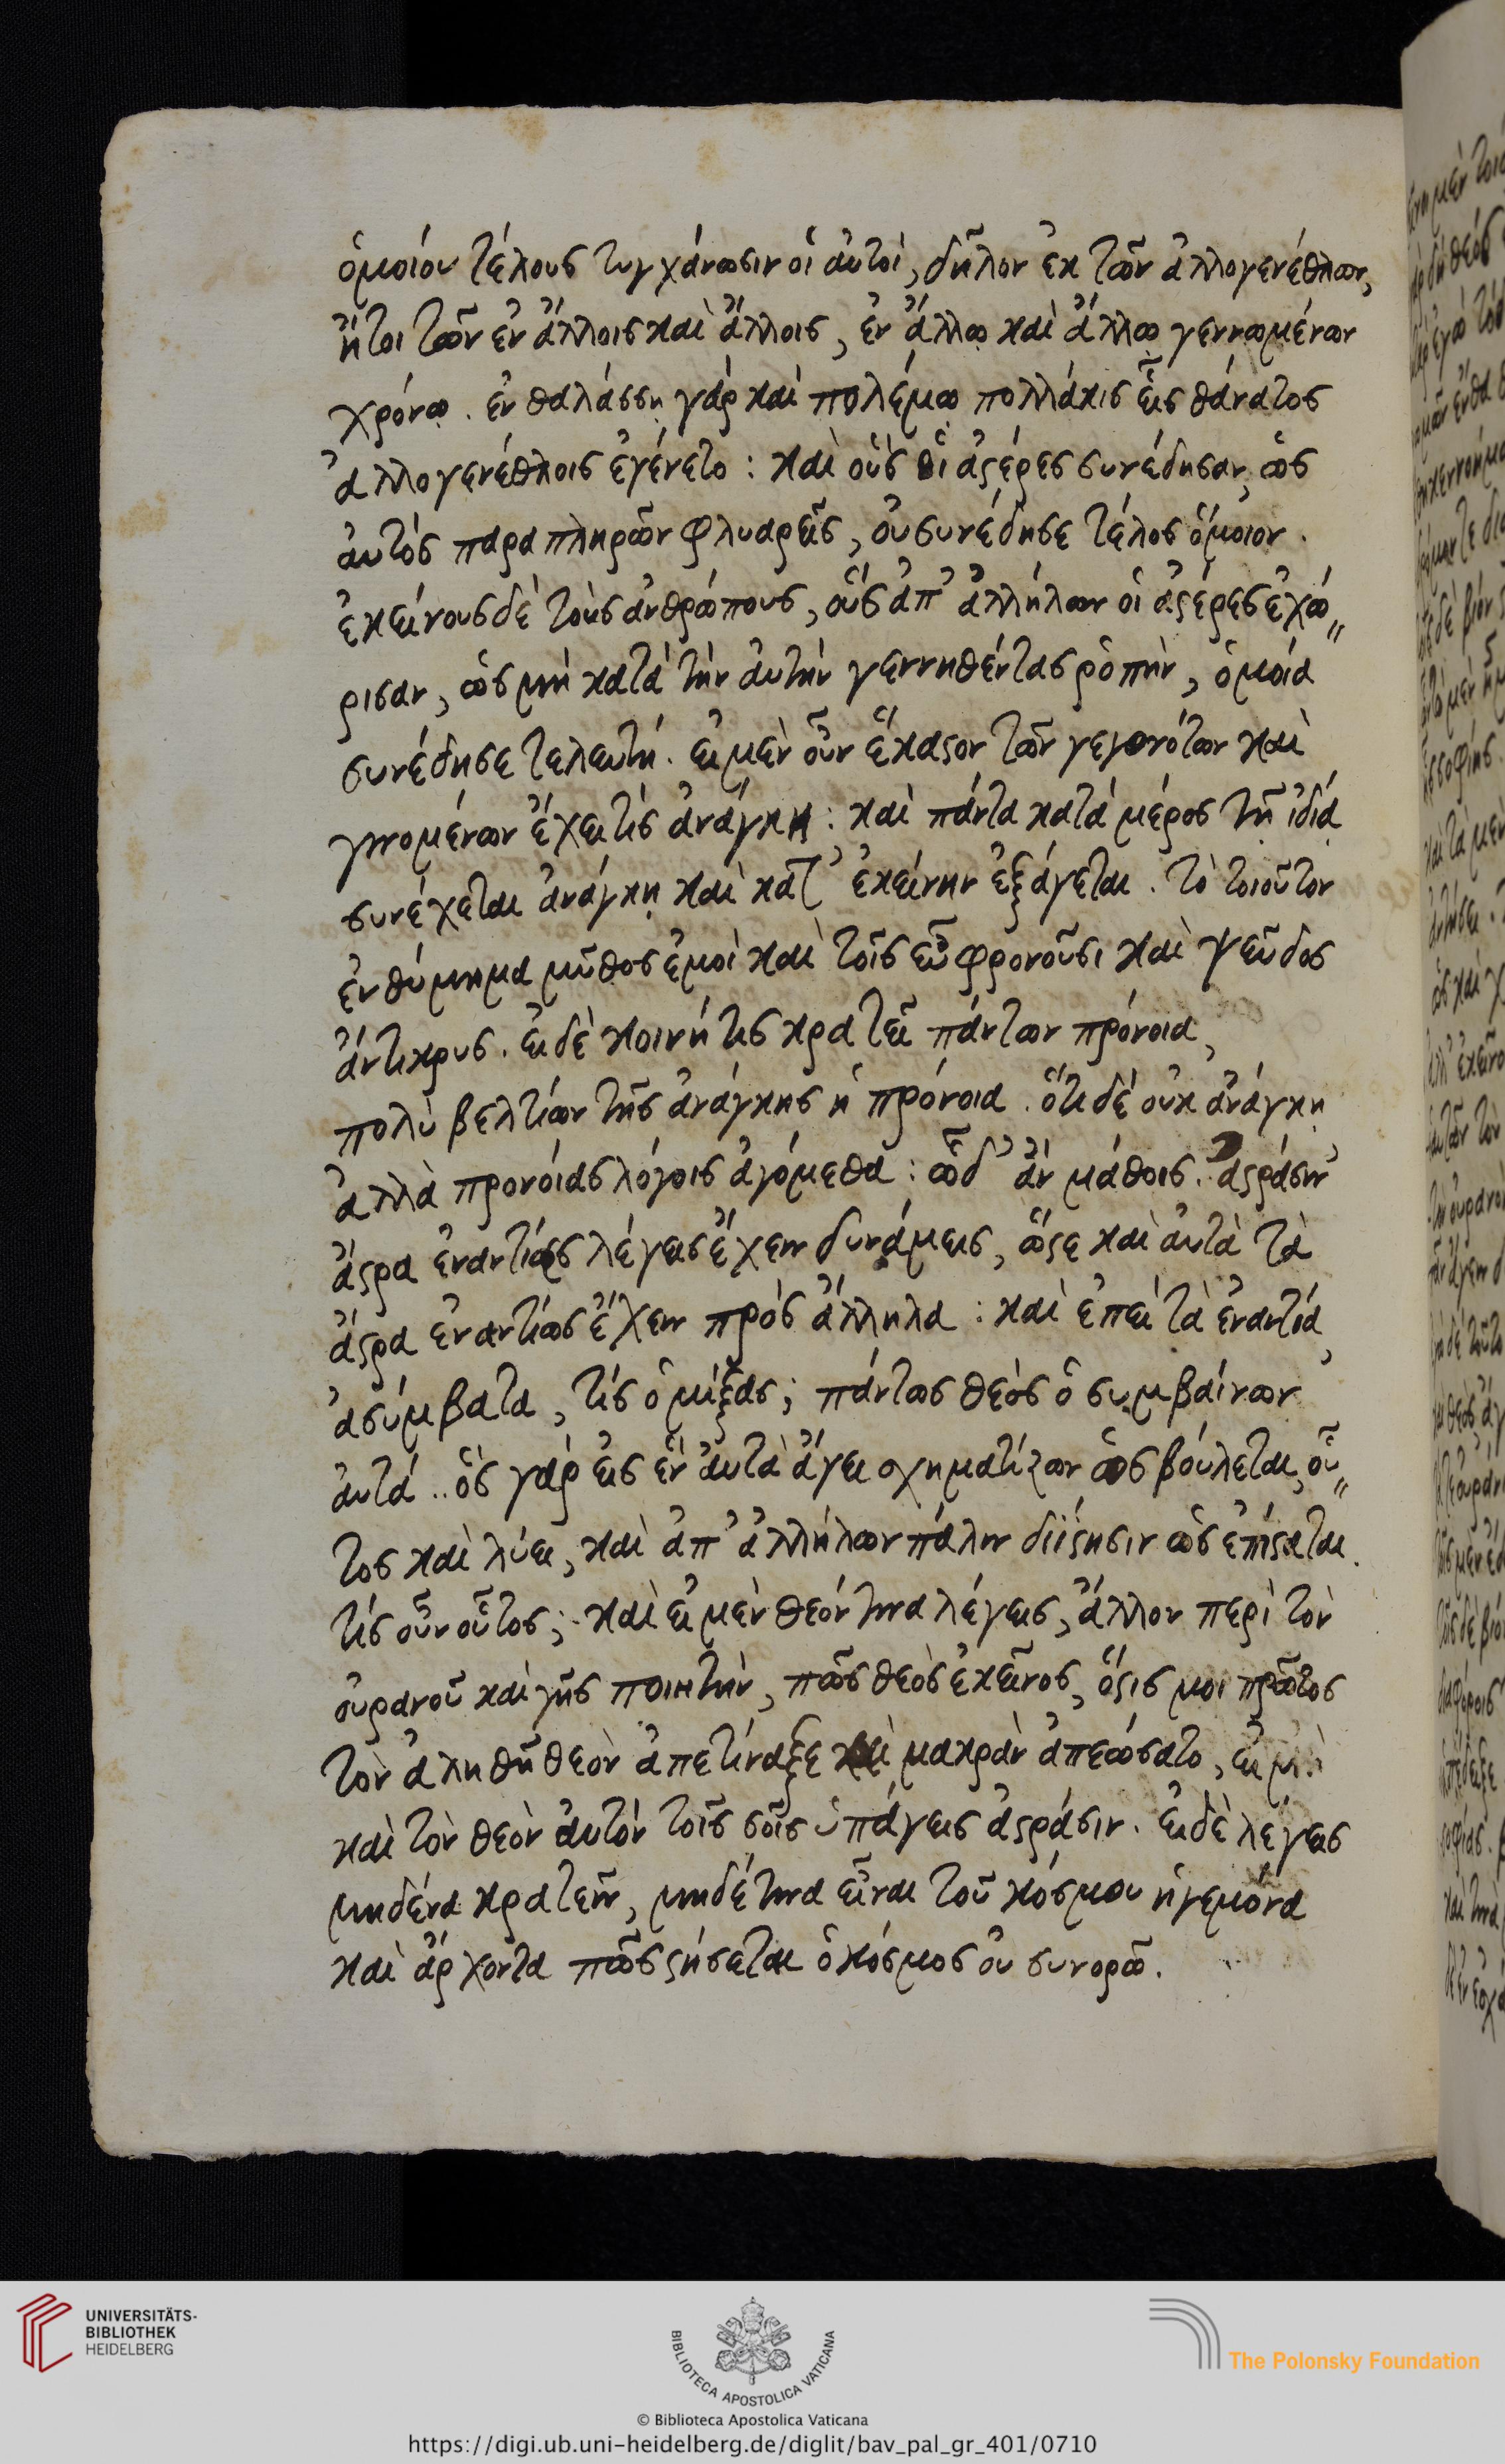 ὁμοίου τέλους τυγχάνωσιν οἱ αὐτοὶ, δῆλον ἐκ τῶν ἀλλογενέθλων,
ἤτοι τῶν ἐν ἄλλοις καὶ ἄλλοις, ἐν ἄλλω καὶ ἄλλω γεννωμένων
χρόνω. ἐν θαλάσση γάρ καὶ πολέμω πολλάκις εἷς θάνατος
ἀλλογενέθλοις ἐγένετο : καὶ οὓς οἱ ἀϛέρες συνέδησαν, ὡς
αὐτὸς παραπληρῶν φλυαρεῖς, οὐ συνέδησε τέλος ὅμοιον.
ἐκείνους δὲ τοὺς ἀνθρώπους, οὓς ἀπ' ἀλλήλων οἱ ἀϛέρες ἐχώ〃
ρισαν, ὡς μὴ κατὰ τὴν αὐτὴν γεννηθέντας ῥοπὴν, ὁμοία
συνέδησε τελευτή. εἰ μὲν οὖν ἕκαϛον τῶν γεγονότων καὶ
γινομένων ἔχει τίς ἀνάγκη : καὶ πάντα κατὰ μέρος τῆ ἰδία
συνέχεται ἀνάγκη καὶ κατ' ἐκείνην ἐξάγεται. τὸ τοιοῦτον
ἐνθύμημα μῦθος ἐμοὶ καὶ τοῖς εὖ φρονοῦσι καὶ ψεῦδος
ἄντικρυς. εἰ δὲ κοινή τις κρατεῖ πάντων πρόνοια,
πολὺ βελτίων τῆς ἀνάγκης ἡ πρόνοια. ὅτι δὲ οὐκ ἀνάγκη
ἀλλὰ προνοίας λόγοις ἀγόμεθα : ὧδ' ἂν μάθοις. ἀϛράσιν
ἄϛρα ἐναντίας λέγεις ἔχειν δυνάμεις, ὥϛε καὶ αὐτὰ τὰ
ἄϛρα ἐναντίως ἔχειν πρὸς ἄλληλα : καὶ ἐπεὶ τὰ ἐναντία,
ἀσύμβατα, τίς ὁ μίξας; πάντως θεὸς ὁ συμβαίνων
αὐτά.. ὃς γὰρ εἰς ἓν αὐτὰ ἄγει σχηματίζων ὡς βούλεται, οὗ〃
τος καὶ λύει, καὶ ἀπ' ἀλλήλων πάλιν διίϛησιν ὡς ἐπίϛαται.
τίς οὖν οὗτος; καὶ εἰ μὲν θεόν τινα λέγεις, ἄλλον περὶ τὸν
οὐρανοῦ καὶ γῆς ποιητὴν, πῶς θεὸς ἐκεῖνος, ὅϛις μοι πρῶτος
τὸν ἀληθῆ θεὸν ἀπετίναξε καὶ μακρὰν ἀπεώσατο, εἰ μὴ
καὶ τὸν θεὸν αὐτὸν τοῖς σοῖς ὑπάγεις ἀϛράσιν. εἰ δὲ λέγεις
μηδένα κρατεῖν, μηδέ τινα εἶναι τοῦ κόσμου ἡγεμόνα
καὶ ἄρχοντα πῶς ϛήσεται ὁ κόσμος οὐ συνορῶ.
UNIVERSITÄTS-
BIBLIOTHEK
HEIDELBERG
BIBLIOTECA APOSTOLICA VATICANA
The Polonsky Foundation
© Biblioteca Apostolica Vaticana
https://digi.ub.uni-heidelberg.de/diglit/bav_pal_gr_401/0710